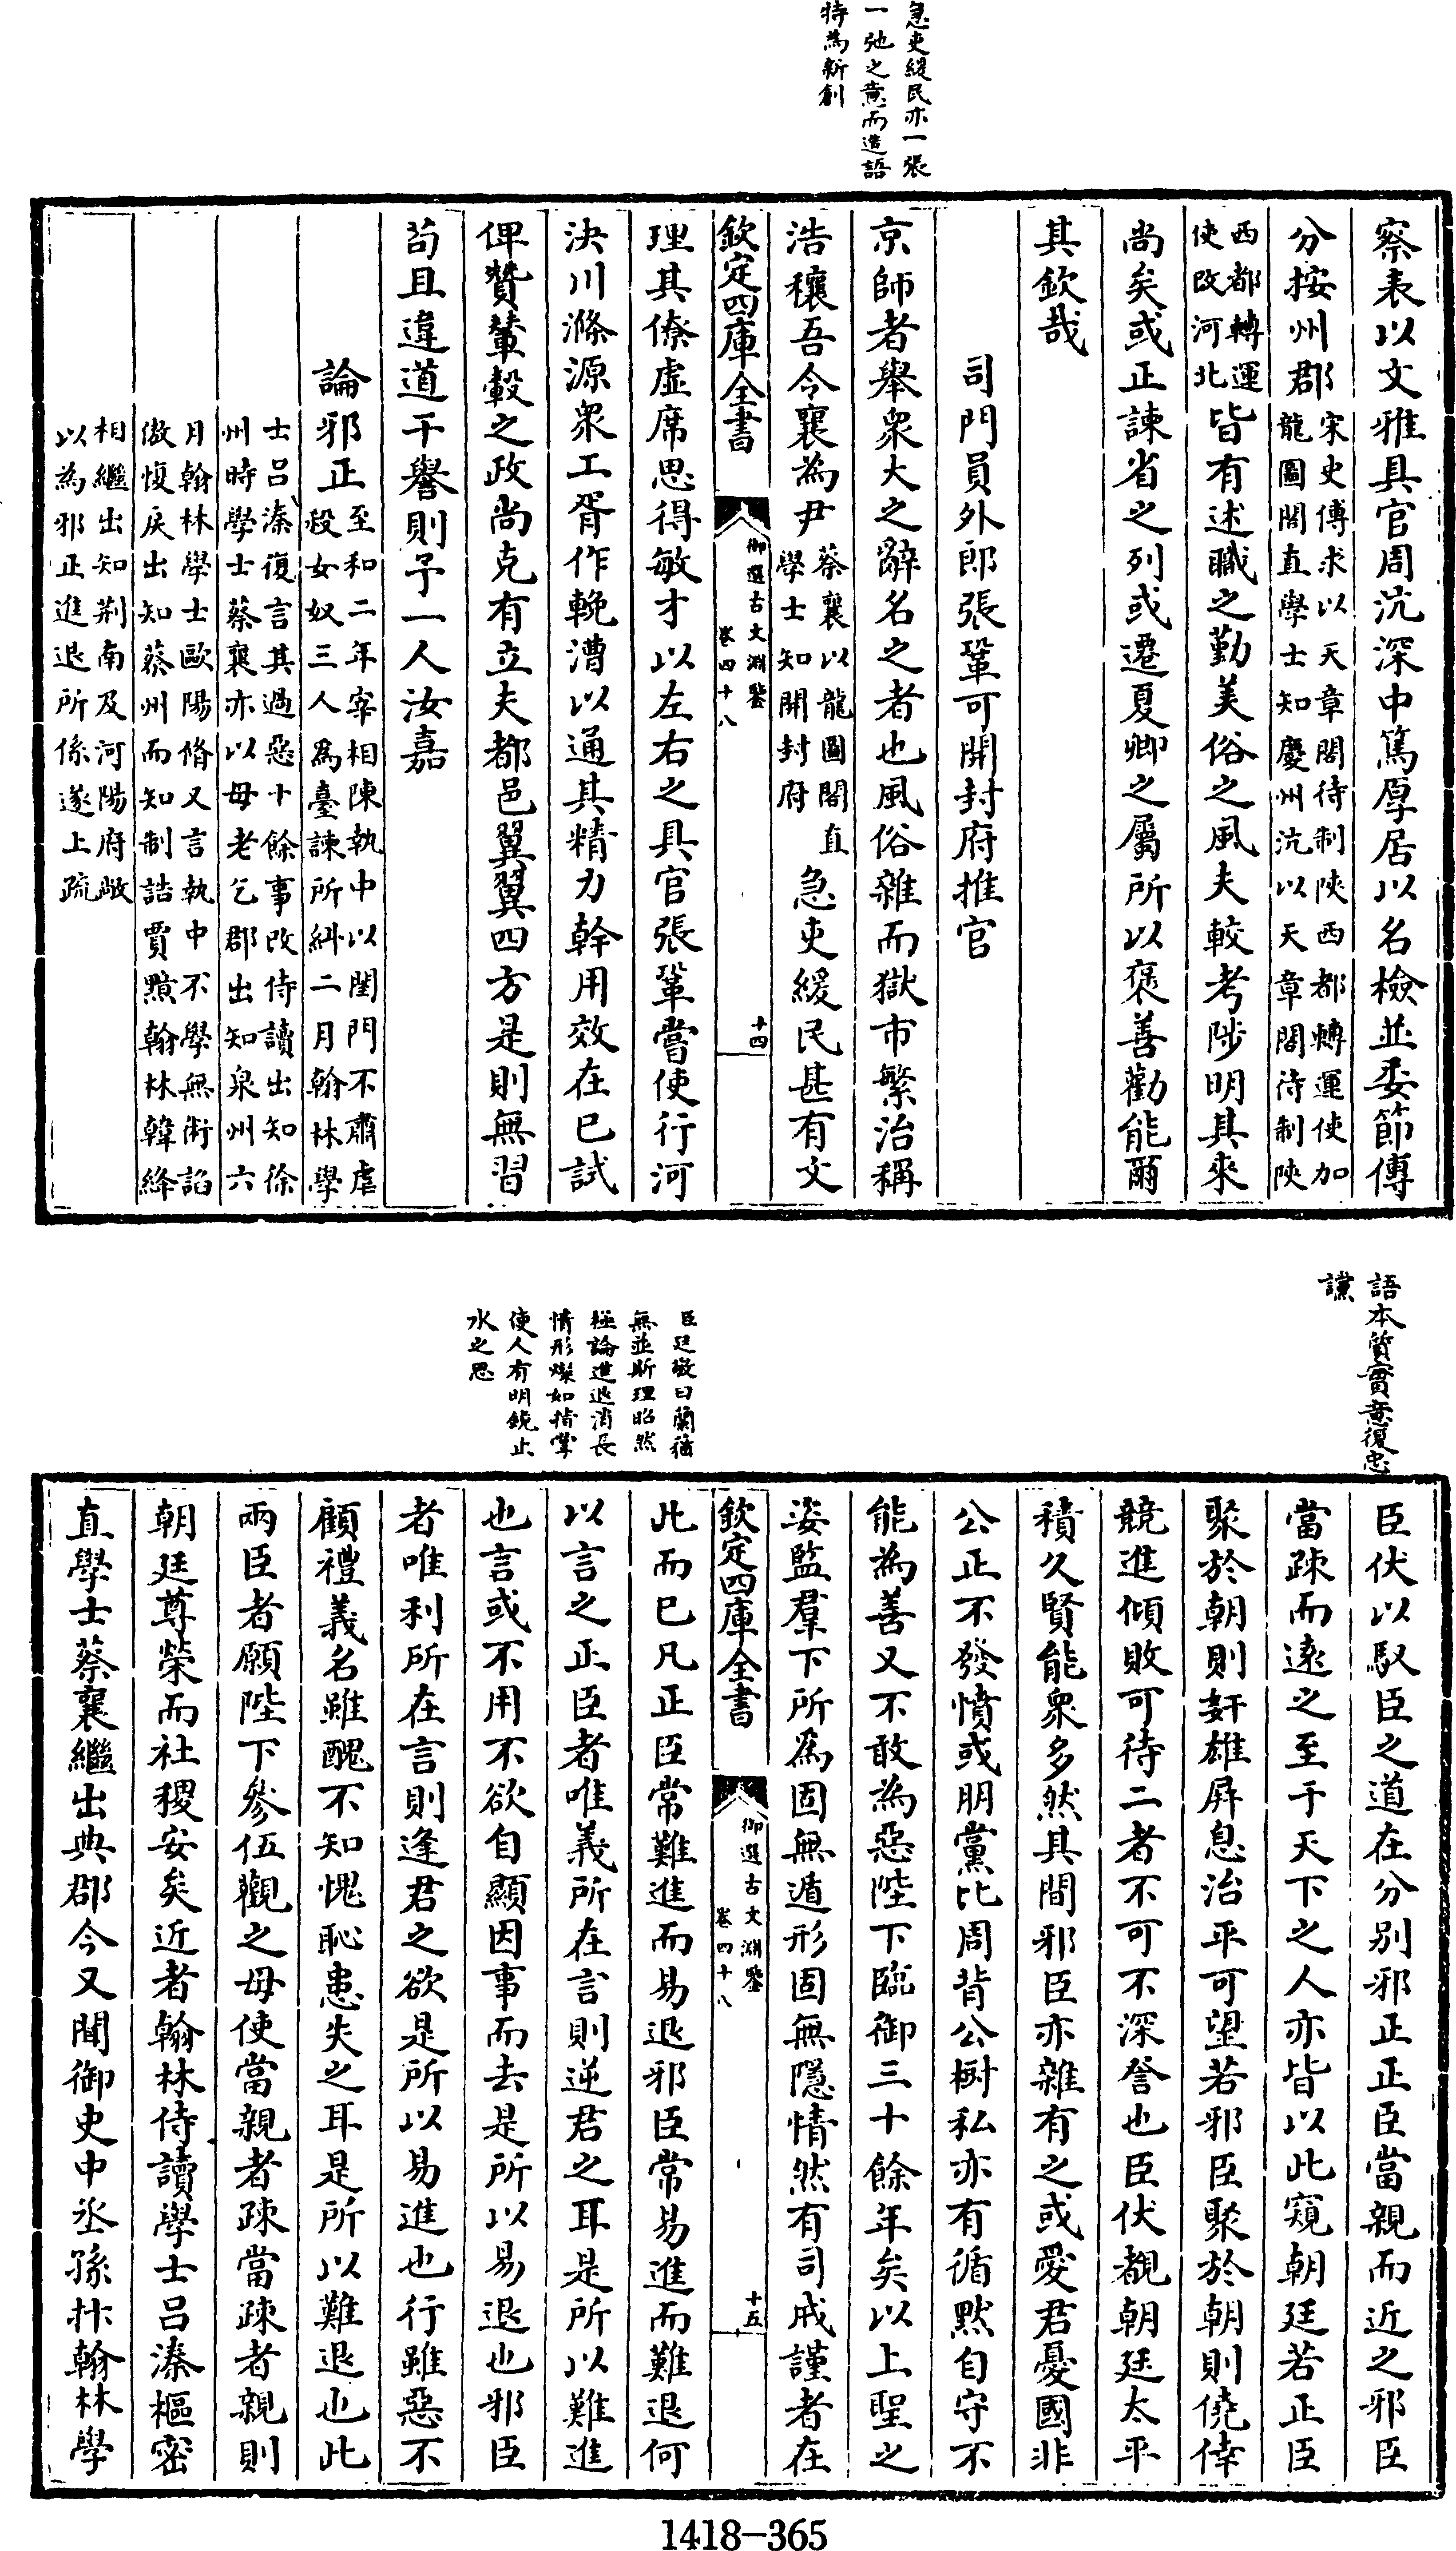 急吏緩民亦一張
一弛之意而造語
特為新創
察表以文雅具官周沆深中篤厚居以名檢並委節傳
分按州郡宋史傳求以天章閣待制陜西都轉運使加
龍圖閣直學士知慶州沆以天章閣待制陜
西都轉運
使改河北皆有述職之勤美俗之風夫較考陟明其來
尚矣或正諫省之列或遷夏卿之屬所以褒善勸能爾
其欽哉
司門員外郎張鞏可開封府推官
京師者舉衆大之辭名之者也風俗雜而獄市繁治稱
浩穰吾令襄為尹蔡襄以龍圖閣直
學士知開封府急吏緩民甚有文
欽定四庫全書
御選古文淵鑒
卷四十八
十四
理其僚虛席思得敏才以左右之具官張鞏嘗使行河
決川滌源衆工胥作輓漕以通其精力幹用效在已試
俾贊輦轂之政尚克有立夫都邑翼翼四方是則無習
苟且違道干譽則予一人汝嘉
論邪正至和二年宰相陳執中以閨門不肅虐
殺女奴三人爲臺諫所糾二月翰林學
士呂溱復言其過惡十餘事改侍讀出知徐
州時學士蔡襄亦以母老乞郡出知泉州六
月翰林學士歐陽脩又言執中不學無術諂
傲愎戾出知蔡州而知制誥賈黯翰林韓絳
相繼出知荆南及河陽府敞
以為邪正進退所係遂上疏
語本質實意復忠
讜
臣廷敬曰蘭蕕
無並斯理昭然
極論進退消長
情形燦如指掌
使人有明鏡止
水之思
臣伏以馭臣之道在分别邪正正臣當親而近之邪臣
當疎而遠之至于天下之人亦皆以此窺朝廷若正臣
聚於朝則奸雄屏息治平可望若邪臣聚於朝則僥倖
競進傾敗可待二者不可不深詧也臣伏覩朝廷太平
積久賢能衆多然其間邪臣亦雜有之或愛君憂國非
公正不發憤或朋黨比周背公樹私亦有循默自守不
能為善又不敢為惡陛下臨御三十餘年矣以上聖之
姿監羣下所爲固無遁形固無隱情然有司戒謹者在
欽定四庫全書
御選古文淵鑒
卷四十八
十五
此而已凡正臣常難進而易退邪臣常易進而難退何
以言之正臣者唯義所在言則逆君之耳是所以難進
也言或不用不欲自顯因事而去是所以易退也邪臣
者唯利所在言則逢君之欲是所以易進也行雖惡不
顧禮義名雖醜不知愧恥患失之耳是所以難退也此
兩臣者願陛下參伍觀之毋使當親者疎當疎者親則
朝廷尊榮而社稷安矣近者翰林侍讀學士呂溱樞密
直學士蔡襄繼出典郡今又聞御史中丞孫抃翰林學
1418-365